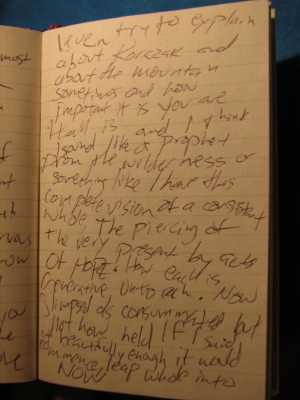 I even try to explain
about Korczak and
about the mountain
sometimes and how
impotant it is you are
it all is and I think
I sound like a prophet
from the wilderness or
something like I have this
complete vision of a consistent
whole The piercing of
the very present by acts
of HOPE. How each is
Generative unto each. Now
Glimpsed as consummated but
not how held If I said
it beautifully enough it would
commence, leap whole into
NOW
most
f
nt
h
rvous
now
you